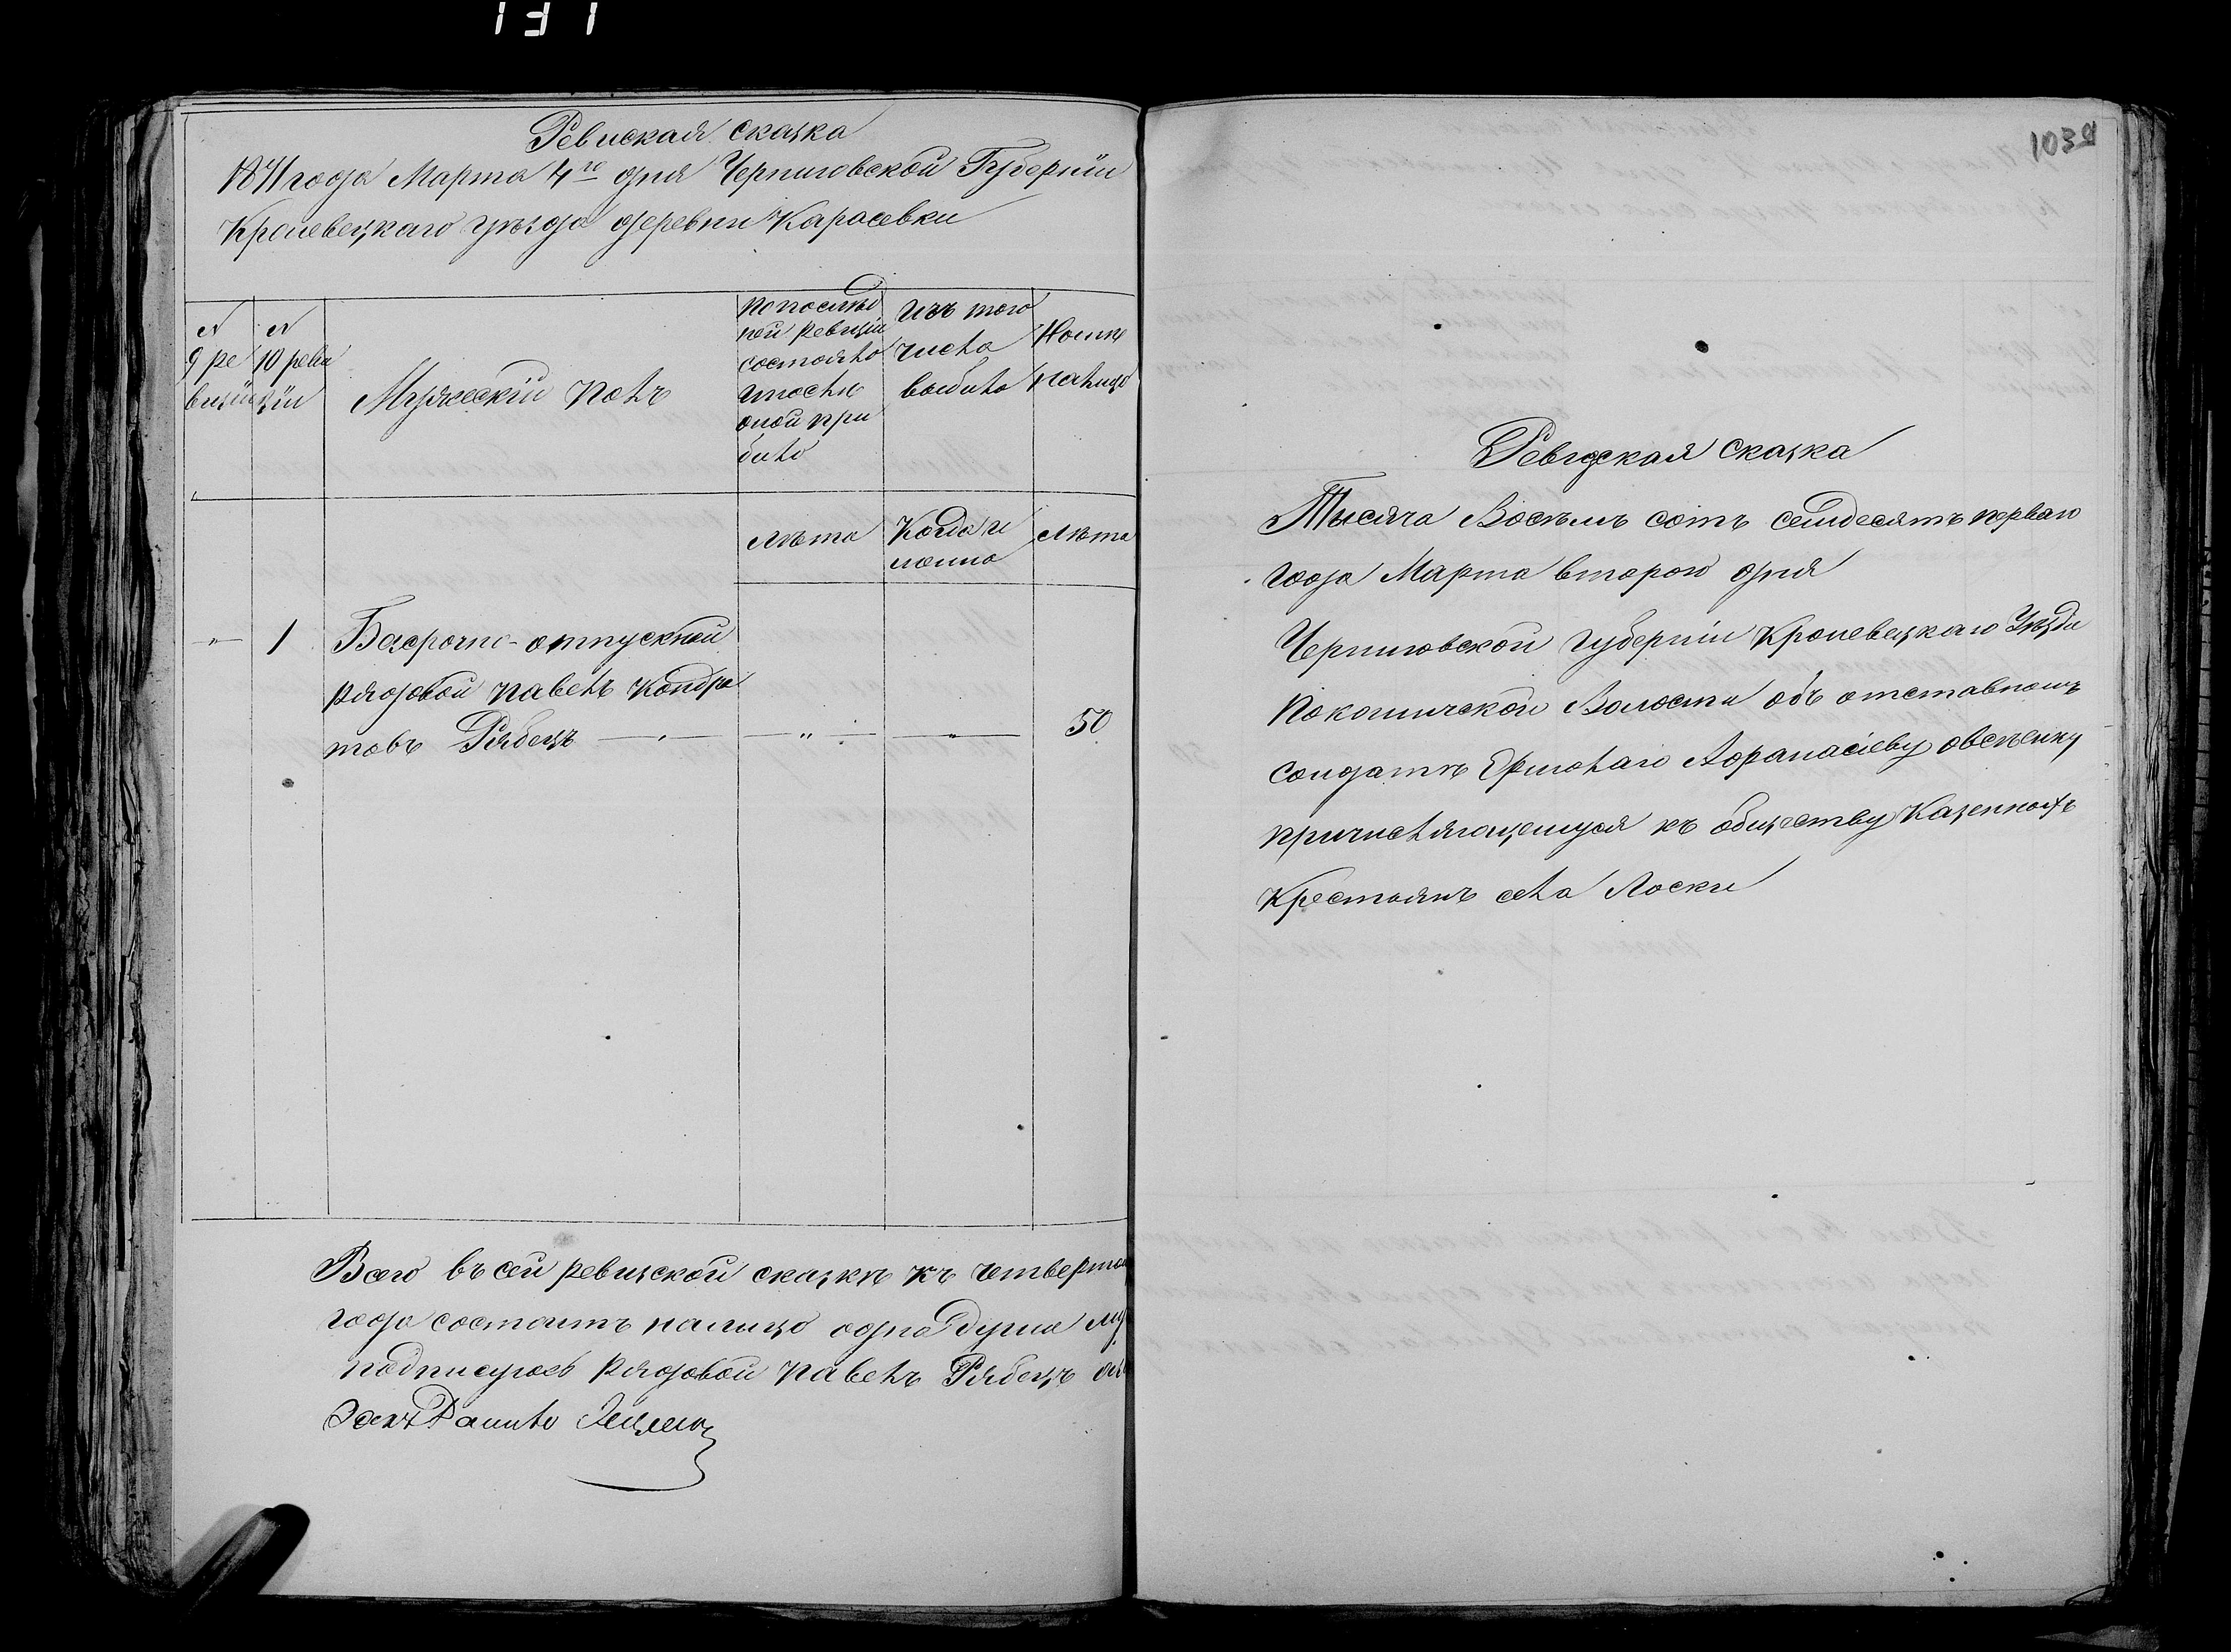 131
Ревиская сказка
1871 года Марта 4го дня Черниговской Губерніи
Кролевецкаго уѣзда деревни Карасевки
N 9 ревизіи
N 10 ревизіи
Мужескій полъ
По послѣдней ревизіи состояло и послѣ оной прибыло
Изъ того числа выбыло
Ныне налицо
Лѣта
Когда и
Лѣта
1
Безсрочно-отпускной
рядовой Павелъ Кондра
товъ Рябецъ
50
Всего въ сей ревизской сказкѣ къ четвертом
года состоитъ налицо одна душа му
подписуюсь рядовой Павелъ Рябецъ
Данило
1039
Ревизская сказка
Тысяча Восѣмъ сотъ семдесятъ перваго
года Марта второго дня
Черниговской губерніи Кролевецкаго Уѣзда
Покошичской Волости объ отставномъ
солдатѣ Ермолаю Афанасіеву Овсѣенку
причисляющемуся къ обществу Казенныхъ
Крестьянъ села Лоски